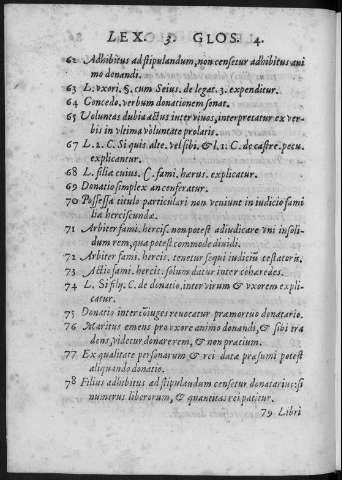 LEX. 3. GLOS. 4.
62 Adhibitus ad stipulandum, non censetur adhibitus ani
mo donandi.
63 L. vxori §. cum Seius. de legat. 3. expenditur.
64 Concedo, verbum donationem sonat.
65 Voluntas dubia actus inter viuos, interpretatur ex ver-
bis in vltima voluntate prolatis.
67 L. 2. C. Si quis alte. vel sibi. & l. 1. C. de castre. pecu.
explicantur.
68 L. filia cuius, C. fami. hærus. explicatur.
69 Donatio simplex an conferatur.
70 Possessa titulo particulari non veniunt in iudicio fami
liæ herciscundæ.
71 Arbiter fami. hercis. non potest adiudicare vni insoli-
dum rem, qua potest commode diuidi.
72 Arbiter fami. hercis. tenetur sequi iudiciũ testatoris.
73 Actio fami. hercis. solum datur inter cohæredes.
74 L. Si filiæ C. de donatio. inter virum & vxorem expli-
catur.
75 Donatio inter cõiuges reuocatur præmortuo donatario.
76 Maritus emens pro vxore animo donandi, & sibi tra
dens, videtur donare rem, & non pretium.
77 Ex qualitate personarum & rei datæ præsumi potest
aliquando donatio.
78 Filius adhibitus ad stipulandum censetur donatarius: si
numerus liberorum, & quantitas rei patitur.
79 Libri